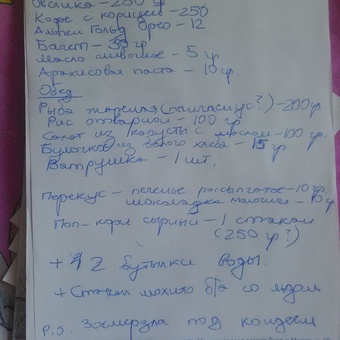 Овсянка - 280 гр
Кофе с корицей - 250
Альпен Гольд Орео - 12
Багет - 30 гр
Масло сливочное - 5 гр
Арахисовая паста - 10 гр.
Обед
Рыба жареная (пангасиус?) - 200 гр
Рис отварной - 100 гр
Салат из капусты с маслом - 100 гр.
Булочка из белого хлеба - 15 гр
Ватрушка - 1 шт.
Перекус - печенье рассыпчатое - 10 гр.
шоколадка молочная - 10 гр
Поп-корн сырный - 1 стакан
(250 гр?)
+ 2 бутылки воды.
+ Стакан мохито б/а со льдом
P.S. Замерзла под кондеем